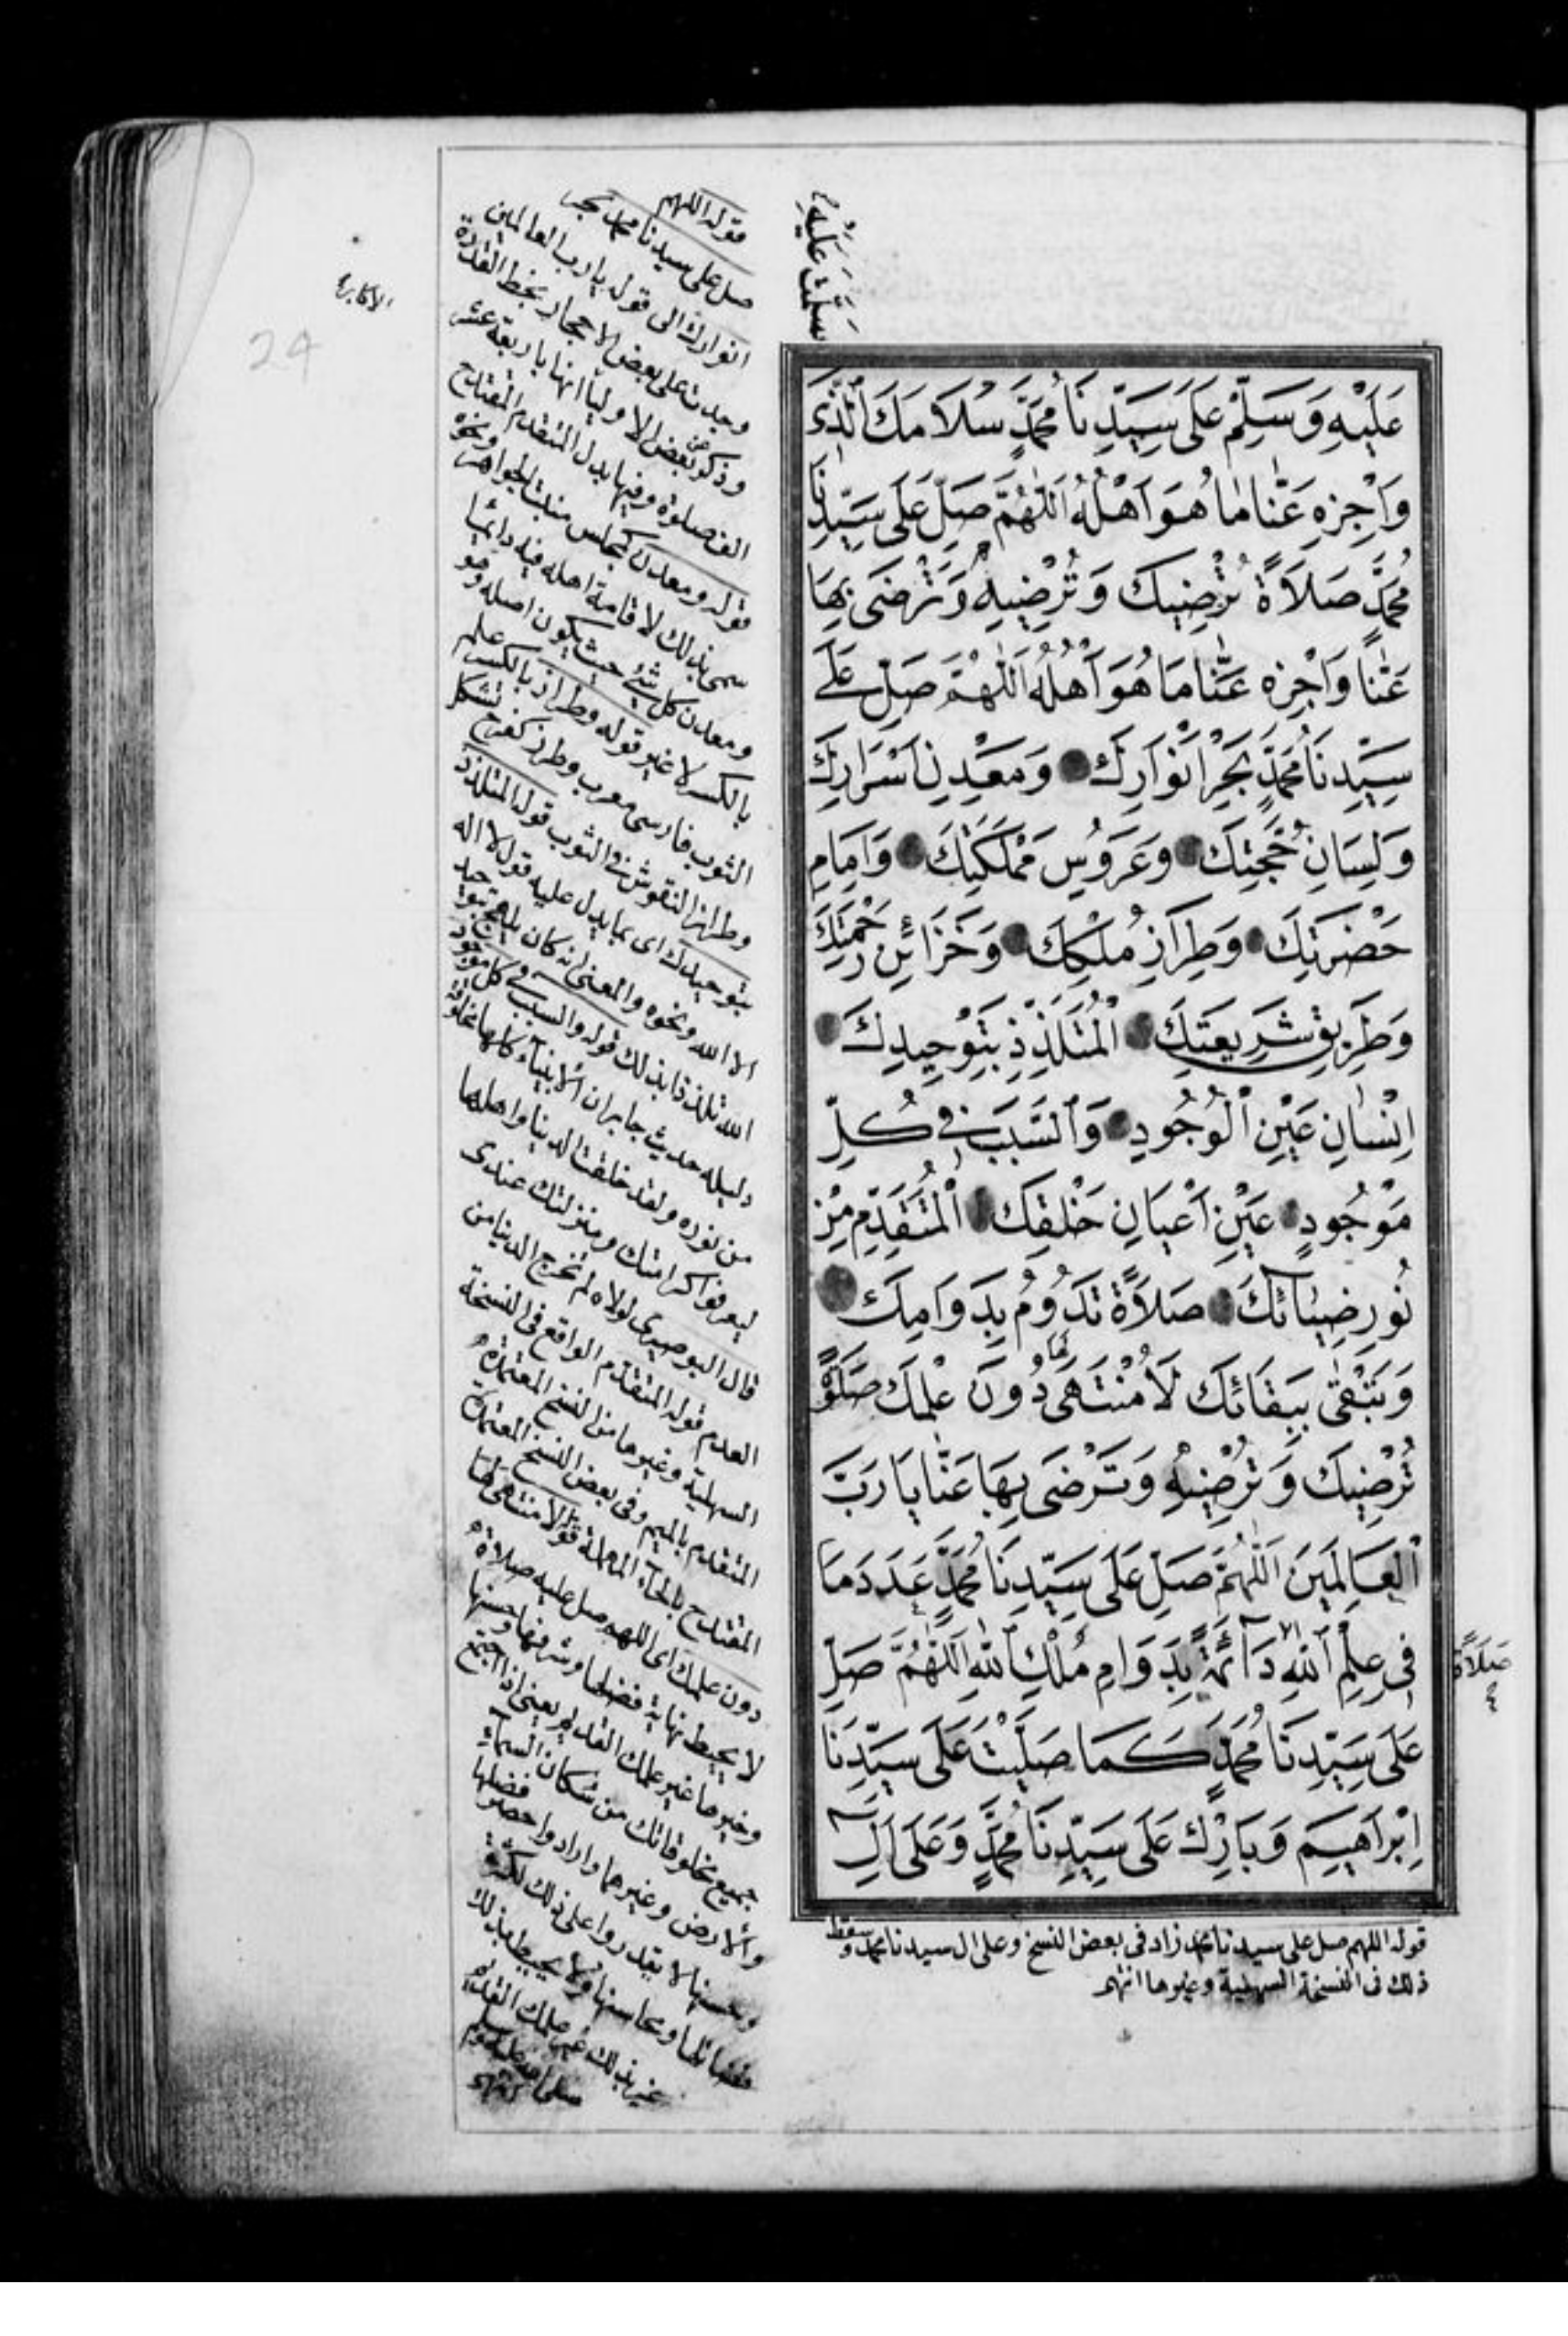 سَلَّمْتَ عَلَيْهِ
عَلَيْهِ وَسَلِّمْ عَلَى سَيِّدِنَا مُحَمَّدٍ سَلَامَكَ ٱلَّذِي
وَاَجْزِهِ عَنَّا مَا هُوَ اَهْلُهُ اَللّٰهُمَّ صَلِّ عَلَى سَيِّدِنَا
مُحَمَّدٍ صَلَاةً تُرْضِيكَ وَتُرْضِيهِ وَتَرْضَى بِهَا
عَنَّا وَاَجْزِهِ عَنَّا مَا هُوَ اَهْلُهُ اَللّٰهُمَّ صَلِّ عَلَى
سَيِّدِنَا مُحَمَّدٍ بَحْرِ اَنْوَارِكَ وَمَعْدِنِ اَسْرَارِكَ
وَلِسَانِ حُجَّتِكَ وَعَرُوسِ مَمْلَكَتِكَ وَاِمَامِ
حَضْرَتِكَ وَطِرَازِ مُلْكِكَ وَخَزَائِنِ رَحْمَتِكَ
وَطَرِيقِ شَرِيعَتِكَ الْمُتَلَذِّذِ بِتَوْحِيدِكَ
اِنْسَانِ عَيْنِ ٱلْوُجُودِ وَٱلسَّبَبِ فِي كُلِّ
مَوْجُودٍ عَيْنِ اَعْيَانِ خَلْقِكَ الْمُتَقَدِّمِ مِنْ
نُورِ ضِيَائِكَ صَلَاةً تَدُومُ بِدَوَامِكَ
وَتَبْقَى بِبَقَائِكَ لَا مُنْتَهَى لَهَا دُونَ عِلْمِكَ صَلَوةً
تُرْضِيكَ وَتُرْضِيهِ وَتَرْضَى بِهَا عَنَّا يَا رَبَّ
ٱلْعَالَمِينَ اَللّٰهُمَّ صَلِّ عَلَى سَيِّدِنَا مُحَمَّدٍ عَدَدَ مَا
فِي عِلْمِ ٱللّٰهِ دَائِمَةً بِدَوَامِ مُلْكِ ٱللّٰهِ اَللّٰهُمَّ صَلِّ
صَلَاةً
عَلَى سَيِّدِنَا مُحَمَّدٍ كَمَا صَلَّيْتَ عَلَى سَيِّدِنَا
اِبْرَاهِيمَ وَبَارِكْ عَلَى سَيِّدِنَا مُحَمَّدٍ وَعَلَى اٰلِ
قوله اللهم صل على سيدنا محمد زاد فى بعض النسخ وعلى ال سيدنا محمد وسقط
ذلك فى النسخة السهلية وغيرها انتهى
قوله اللهم
صل على سيدنا محمد بحر
انوارك الى قوله يا رب العالمين
وجدت على بعض الاحجار بخط القدرة
وذكر عن بعض الاوليا انها باربعة عشر
الف صلوة وفيها بدل المتقدم المقتدح
قوله ومعدن كمجلس منبت الجواهر ونحوه
سمى بذلك لاقامة اهله فيه دائما
ومعدن كل شئ حيث يكون اصله وهو
بالكسر لا غير قوله وطراز بالكسر علم
الثوب فارسى معرب وطرز كفرح تشكل
وطرازا النقوش فى الثوب قوله المتلذذ
بتوحيدك اى بما يدل عليه قول لا اله
الا الله ونحوه والمعنى انه كان يلهج بتوحيد
الله تلذذا بذلك قوله والسبب فى كل موجود
دليله حديث جابر ان الانبيآء كلها مخلوقة
من نوره ولقد خلقت الدنيا واهلها
ليعرفوا كرامتك ومنزلتك عندى
قال البوصيرى لولاه لم تخرج الدنيا من
العدم قوله المتقدم الواقع فى النسخة
السهلية وغيرها من النسخ المعتمدة
المتقدم بالميم وفى بعض النسخ المعتمدة
المقتدح بالحآء المهملة قوله لا منتهى لها
دون علمك اى اللهم صل عليه صلاة
لا يحيط نهاية فضلها وشرفها وحسنها
وخيرها غير علمك القديم يعنى اذا اجتمع
جميع مخلوقاتك من سكان السمآء
والارض وغيرهما وارادوا حصر فضلها
وحسنها لا يقدروا على ذلك لكثرة
فضائلها ومحاسنها ولا يحيط بذلك
غير بذلك غير علمك القديم
صلى الله عليه وسلم
انتهى
24